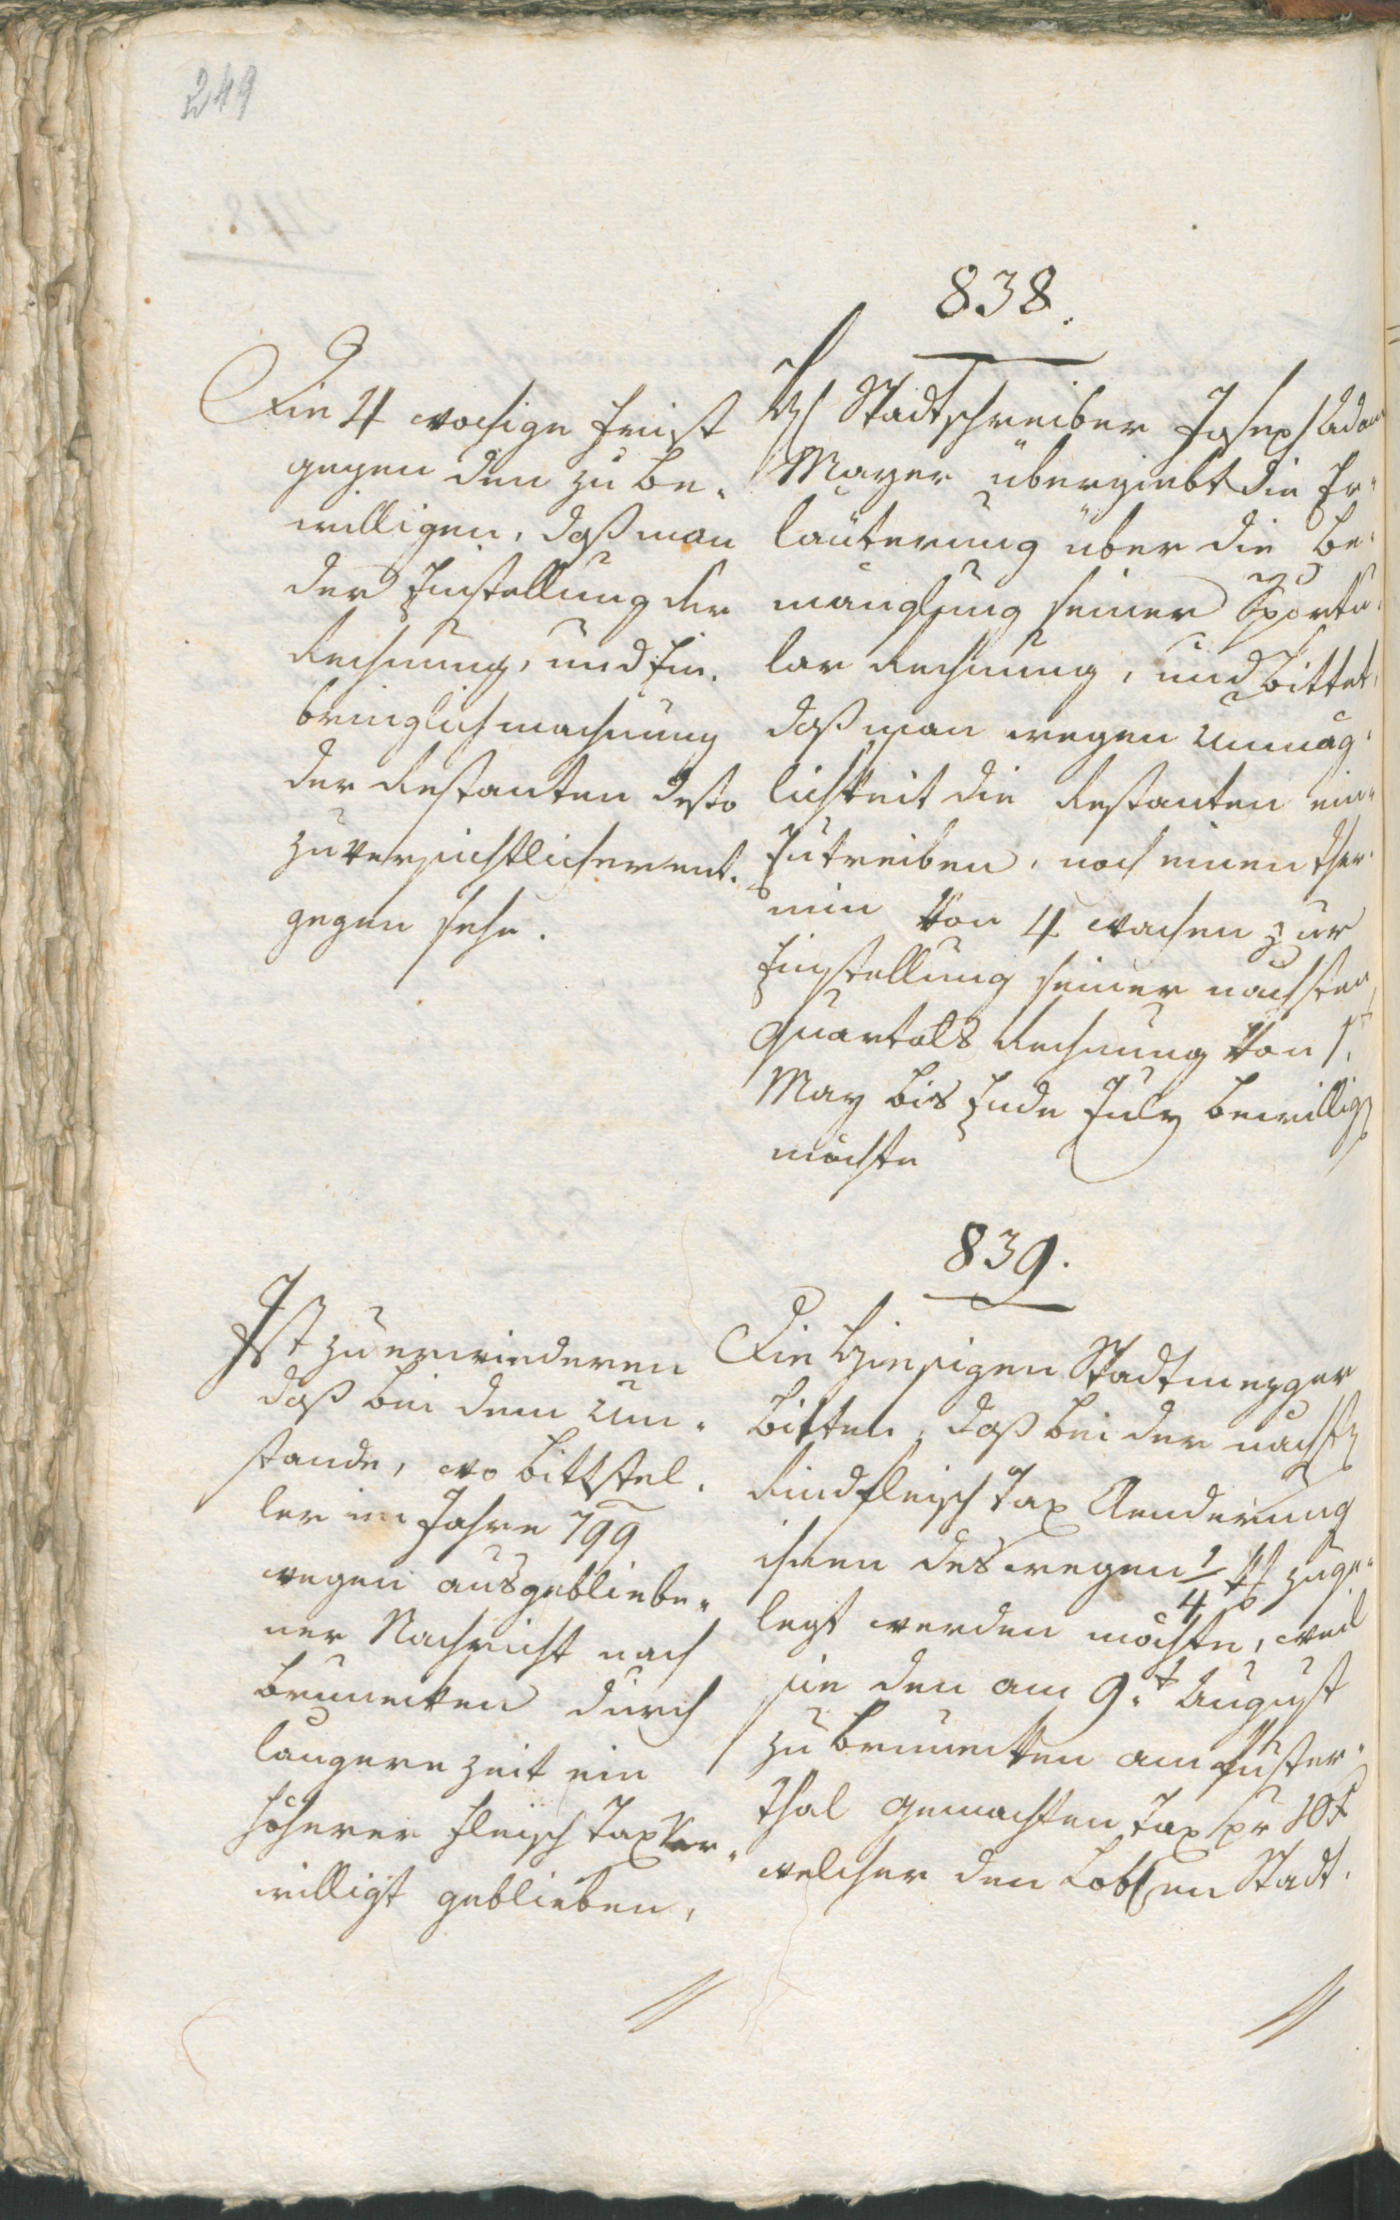 249
838.
Die 4 wochige Frist
gegen den zu be-
willigen, daß man
der Einstellung der
Rechnung, und Ein-
bringlichmachung
der Restanten desto
zuversichtlicher ent-
gegen sehe.
H Stadtschreiber Joseph Adam
Mayer übergiebt die Er-
läuterung über die Be-
mänglung seiner Sportu-
lar Rechnung, und bittet,
daß man wegen Unmög-
lichkeit die Restanten ein-
zutreiben, noch einen Ther-
min von 4 wochen zur
Einstellung seiner nächsten
Quartals Rechnung von 1t
May bis Ende July bewillig
möchte
839.
Ist zu erwiederen
daß bei dem Um-
stande, wo Bittstel-
ler im Jahre 799
wegen ausgebliebe-
ner Nachricht nach
Brunecken durch
längere Zeit ein
höherer Fleisch Tax ver-
willigt geblieben,
Die hiesigen Stadtmezger
bitten, daß bei der nächst
Rindfleisch Tax Aenderung
ihnen deswegen 1/4 zuge-
legt werden möchte, weil
sie den am 9t August
zu Brunecken am Puster-
thal gemachten Tax pr 10x
welcher den Lobl en Stadt-